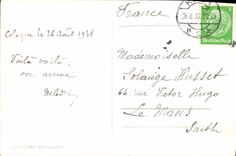 France
Cologne le 26 Août 1938
Voilà voilà,
on arrive
Mademoiselle
Solange Husset
66 rue Victor Hugo
Le Mans
Sarthe
Deutsches Reich